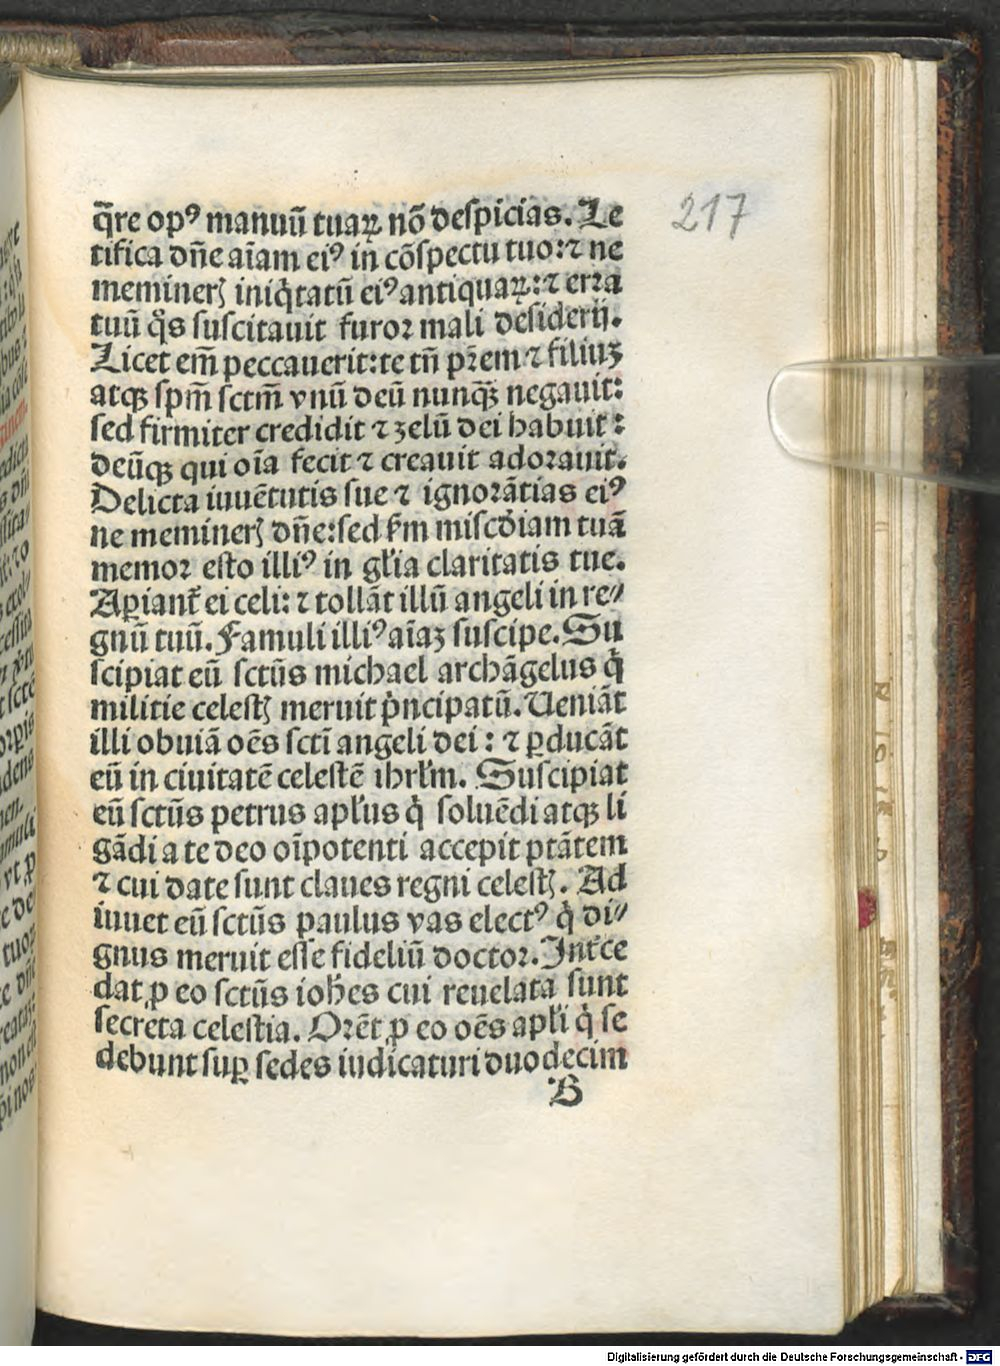 q̄re opꝰ manuū tuaꝝ nō despicias. Le
tifica dn̄e aīam eiꝰ in cōspectu tuo: ⁊ ne
memineꝝ iniq̇tatū eiꝰ antiquaꝝ: ⁊ erra
tuū q̊s suscitauit furor mali desiderij.
Licet em̄ peccauerit: te tn̄ pr̄em ⁊ filiuꝫ
atqꝫ sp̄m sctm̄ vnū deū nunqꝫ̄ negauit:
sed firmiter credidit ⁊ zelū dei habuit:
deūqꝫ qui oīa fecit ⁊ creauit adorauit.
Delicta iuuētutis sue ⁊ ignorātias eiꝰ
ne memineꝝ dn̄e: sed ẜm miscd̓iam tuā
memor esto illiꝰ in gl̓ia claritatis tue.
Apiant̄ ei celi: ⁊ tollāt illū angeli in re⸗
gnū tuū. Famuli illiꝰ aīaꝫ suscipe. Su
scipiat eū sctūs michael archāgelus q̇
militie celestꝭ meruit pṅcipatū. Ueniāt
illi obuiā oēs sctī angeli dei: ⁊ ꝑducāt
eū in ciuitatē celestē ihrl̓m. Suscipiat
eū sctūs petrus apl̓us q̇ soluēdi atqꝫ li
gādi a te deo oīpotenti accepit ptātem
⁊ cui date sunt claues regni celestꝭ. Ad
iuuet eū sctūs paulus vas electꝰ q̇ di⸗
gnus meruit esse fideliū doctor. Int̓ce
dat ꝓ eo sctūs ioħes cui reuelata sunt
secreta celestia. Orēt ꝓ eo oēs apl̓i q̇ se
debunt suꝑ sedes iudicaturi duodecim
B
217
Digitalisierung gefördert durch die Deutsche Forschungsgemeinschaft - DFG